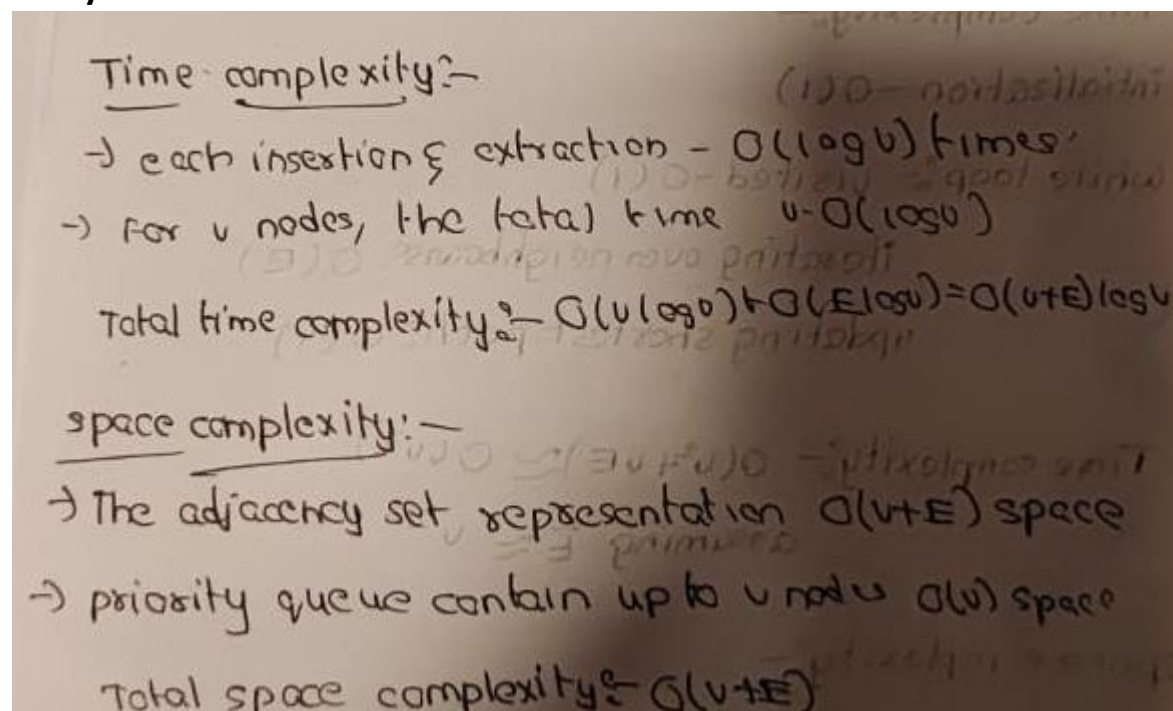 Time complexity:-
→ each insertion & extraction - O(log v) times.
→ For v nodes, the total time v-O(logv)
Total time complexity:- O(v logv)+O(Elogv)=O(v+E)logv
space complexity:-
→ The adjacency set representation O(v+E) space
→ priority queue contain up to v nodes O(v) space
Total space complexity:- O(v+E)